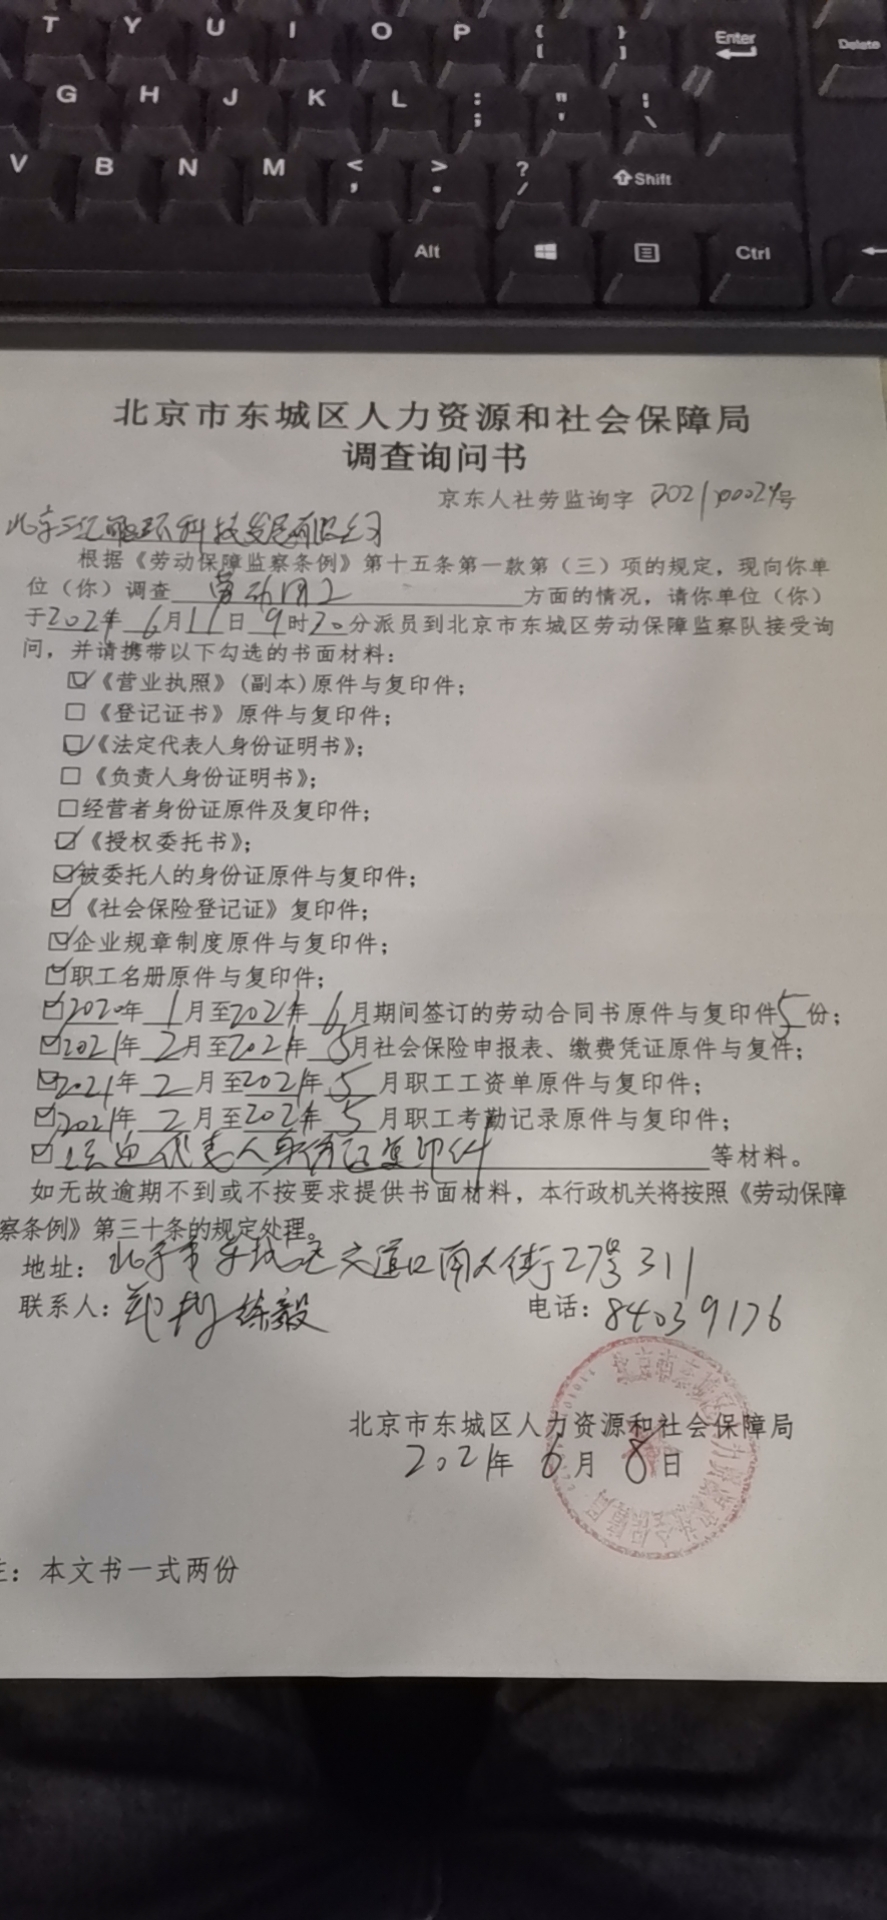 T Y U I O P { [ } ] Enter Delete
G H J K L : ; " ' | \
V B N M < , > . ? / Shift
Alt Ctrl
北京市东城区人力资源和社会保障局
调查询问书
京东人社劳监询字 2021 号
北京 环科技发展有限公司
根据《劳动保障监察条例》第十五条第一款第（三）项的规定，现向你单
位（你）调查 劳动用工 方面的情况，请你单位（你）
于2021年 6月11日 9时30分派员到北京市东城区劳动保障监察队接受询
问，并请携带以下勾选的书面材料：
☑《营业执照》(副本)原件与复印件；
□《登记证书》原件与复印件；
☑《法定代表人身份证明书》；
□《负责人身份证明书》；
□经营者身份证原件及复印件；
☑《授权委托书》；
☑被委托人的身份证原件与复印件；
☑《社会保险登记证》复印件；
☑企业规章制度原件与复印件；
☑职工名册原件与复印件；
☑2020年 1月至2021年 6月期间签订的劳动合同书原件与复印件5份；
☑2021年 2月至2021年 5月社会保险申报表、缴费凭证原件与复件；
☑2021年 2月至2021年 5月职工工资单原件与复印件；
☑2021年 2月至2021年 5月职工考勤记录原件与复印件；
☑法定代表人身份证复印件 等材料。
如无故逾期不到或不按要求提供书面材料，本行政机关将按照《劳动保障
察条例》第三十条的规定处理。
地址：北京市东城区交道口南大街27号311
联系人： 徐毅 电话：84039176
北京市东城区人力资源和社会保障局
2021年 6月 8日
注：本文书一式两份